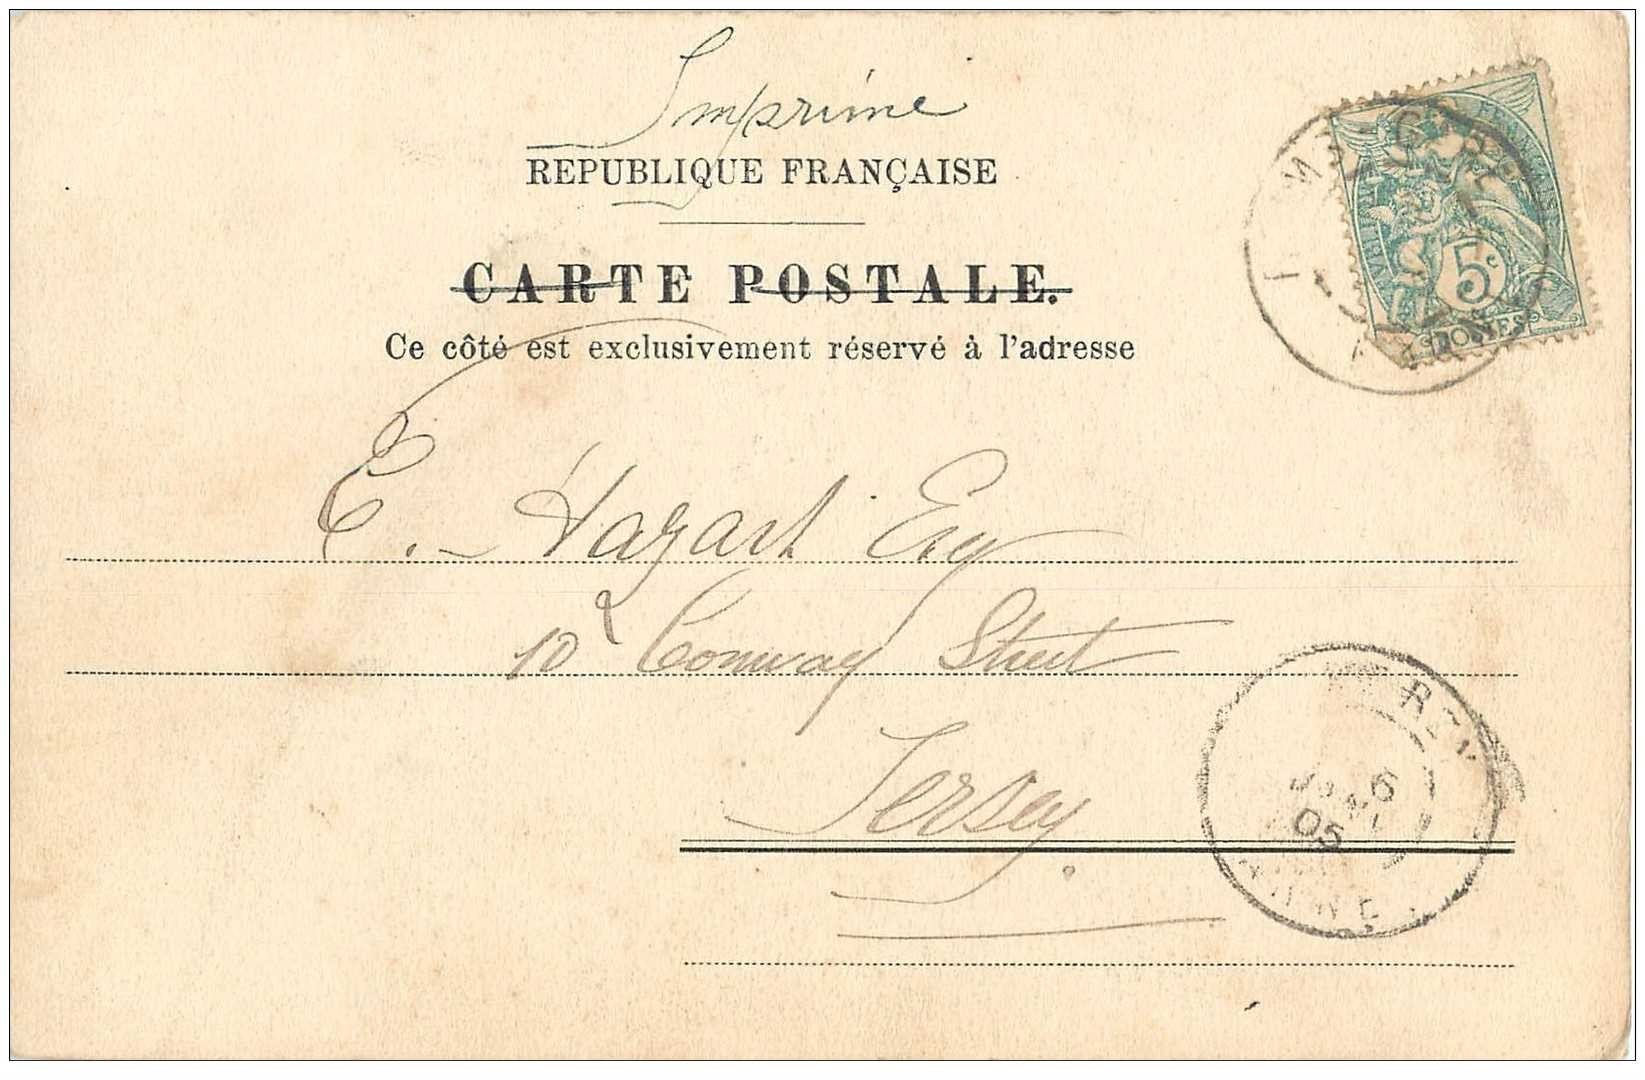 Imprimé
REPUBLIQUE FRANÇAISE
CARTE POSTALE.
Ce côté est exclusivement réservé à l'adresse
5c
E. Hazart Esq
10 Conway Street
Jersey.
JERSEY
6
05